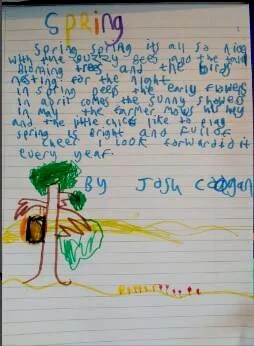 Spring
Spring Spring its all so nice
with the buzzy bees and the
bloming trees and the birds
nesting for the night.
in spring peeps the early flowers
in april comes the sunny showers
in may the farmer mows his hay
and the little chicks like to play
spring is bright and full of
cheer i look forward it
every year
By Josh Coogan